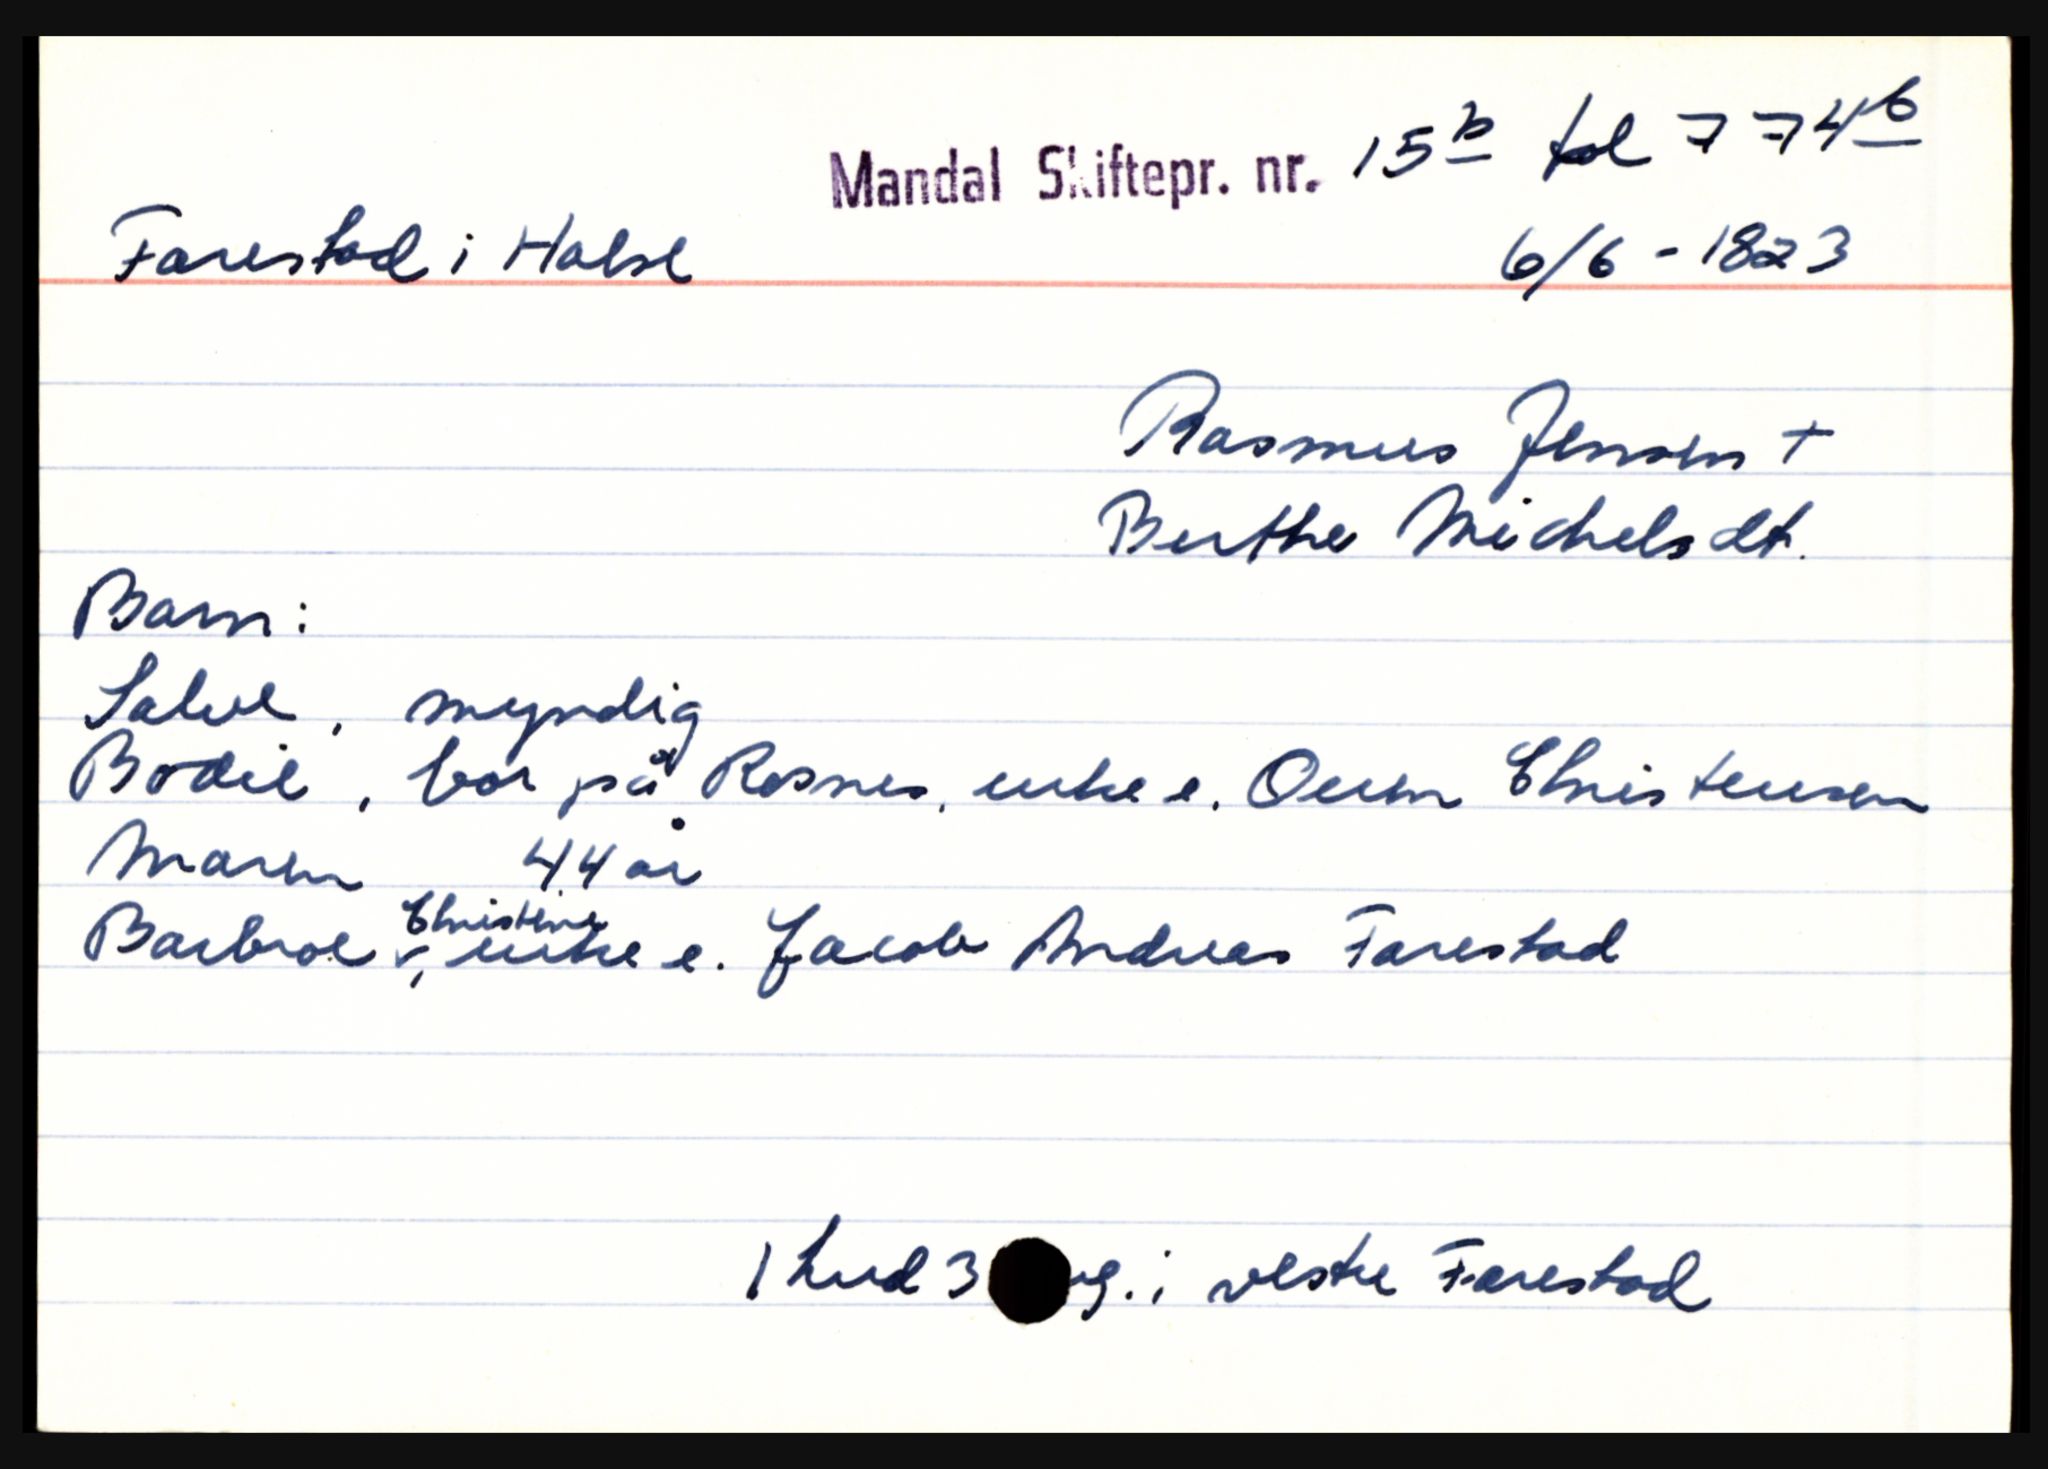 Mandal Skiftepr. nr. 15b fol 774b
Farestad i Halse 6/6 - 1823
Rasmus Jensen +
Berthe Michelsdt.
Barn:
Salve, myndig
Bodil, bor på Rosnes, enke e. Ouen Christensen
Maren 44 år
Christine
Barbroe, enke e. Jacob Andreas Farestad
1 hud 3 eng. i vestre Farestad